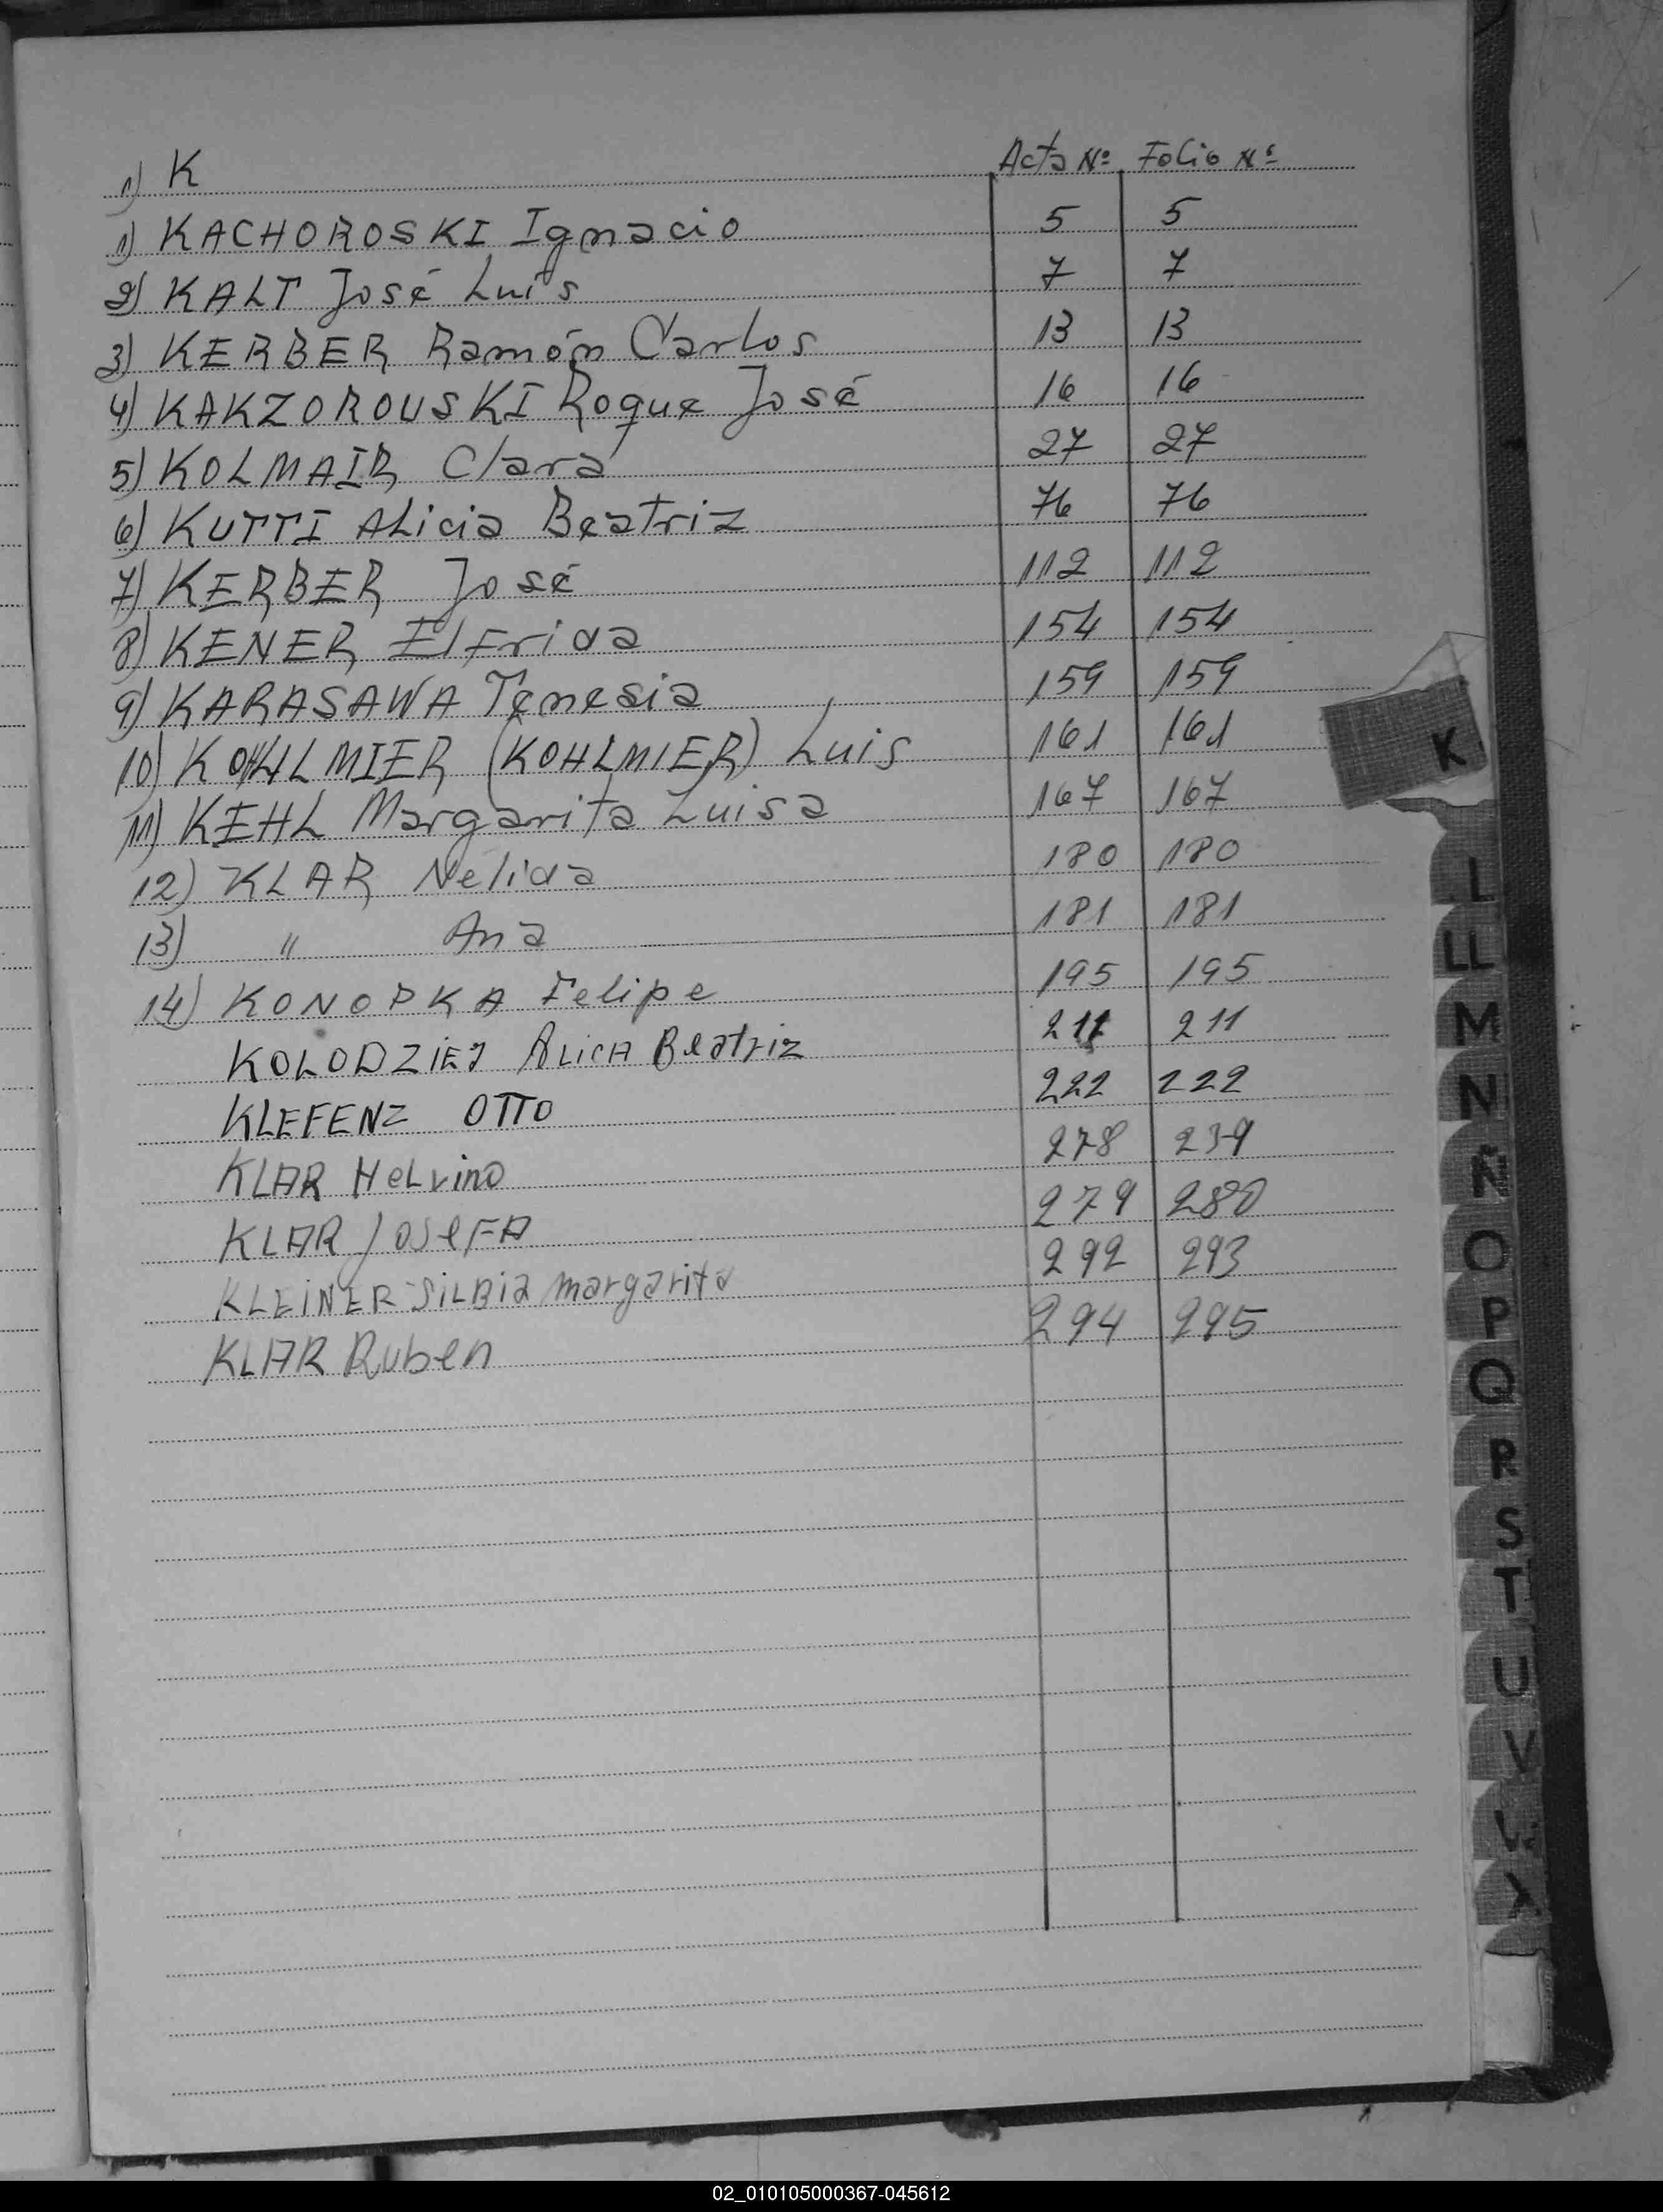 1) K Acta Nº Folio Nº
1) KACHOROSKI Ignacio 5 5
2) KALT José Luis 7 7
3) KERBER Ramón Carlos 13 13
4) KAKZOROUSKI Roque José 16 16
5) KOLMAIR Clara 27 27
6) KUTTI ALicia Beatriz 76 76
7) KERBER José 112 112
8) KENER ElFrida 154 154
9) KARASAWA Tenesia 159 159
10) KOHLMIER (KOHLMIER) Luis 161 161
11) KEHL Margarita Luisa 167 167
12) KLAR Nélida 180 180
13) " Ana 181 181
14) KONOPKA Felipe 195 195
KOLODZIEJ ALiCA Beatriz 211 211
KLEFENZ OTTO 222 222
KLAR HeLvino 278 239
KLAR JoseFA 279 280
KLEiNER SiLBia margarita 292 293
KLAR Ruben 294 295
K
L
LL
M
N
Ñ
O
P
Q
R
S
T
U
V
X
02_010105000367-045612